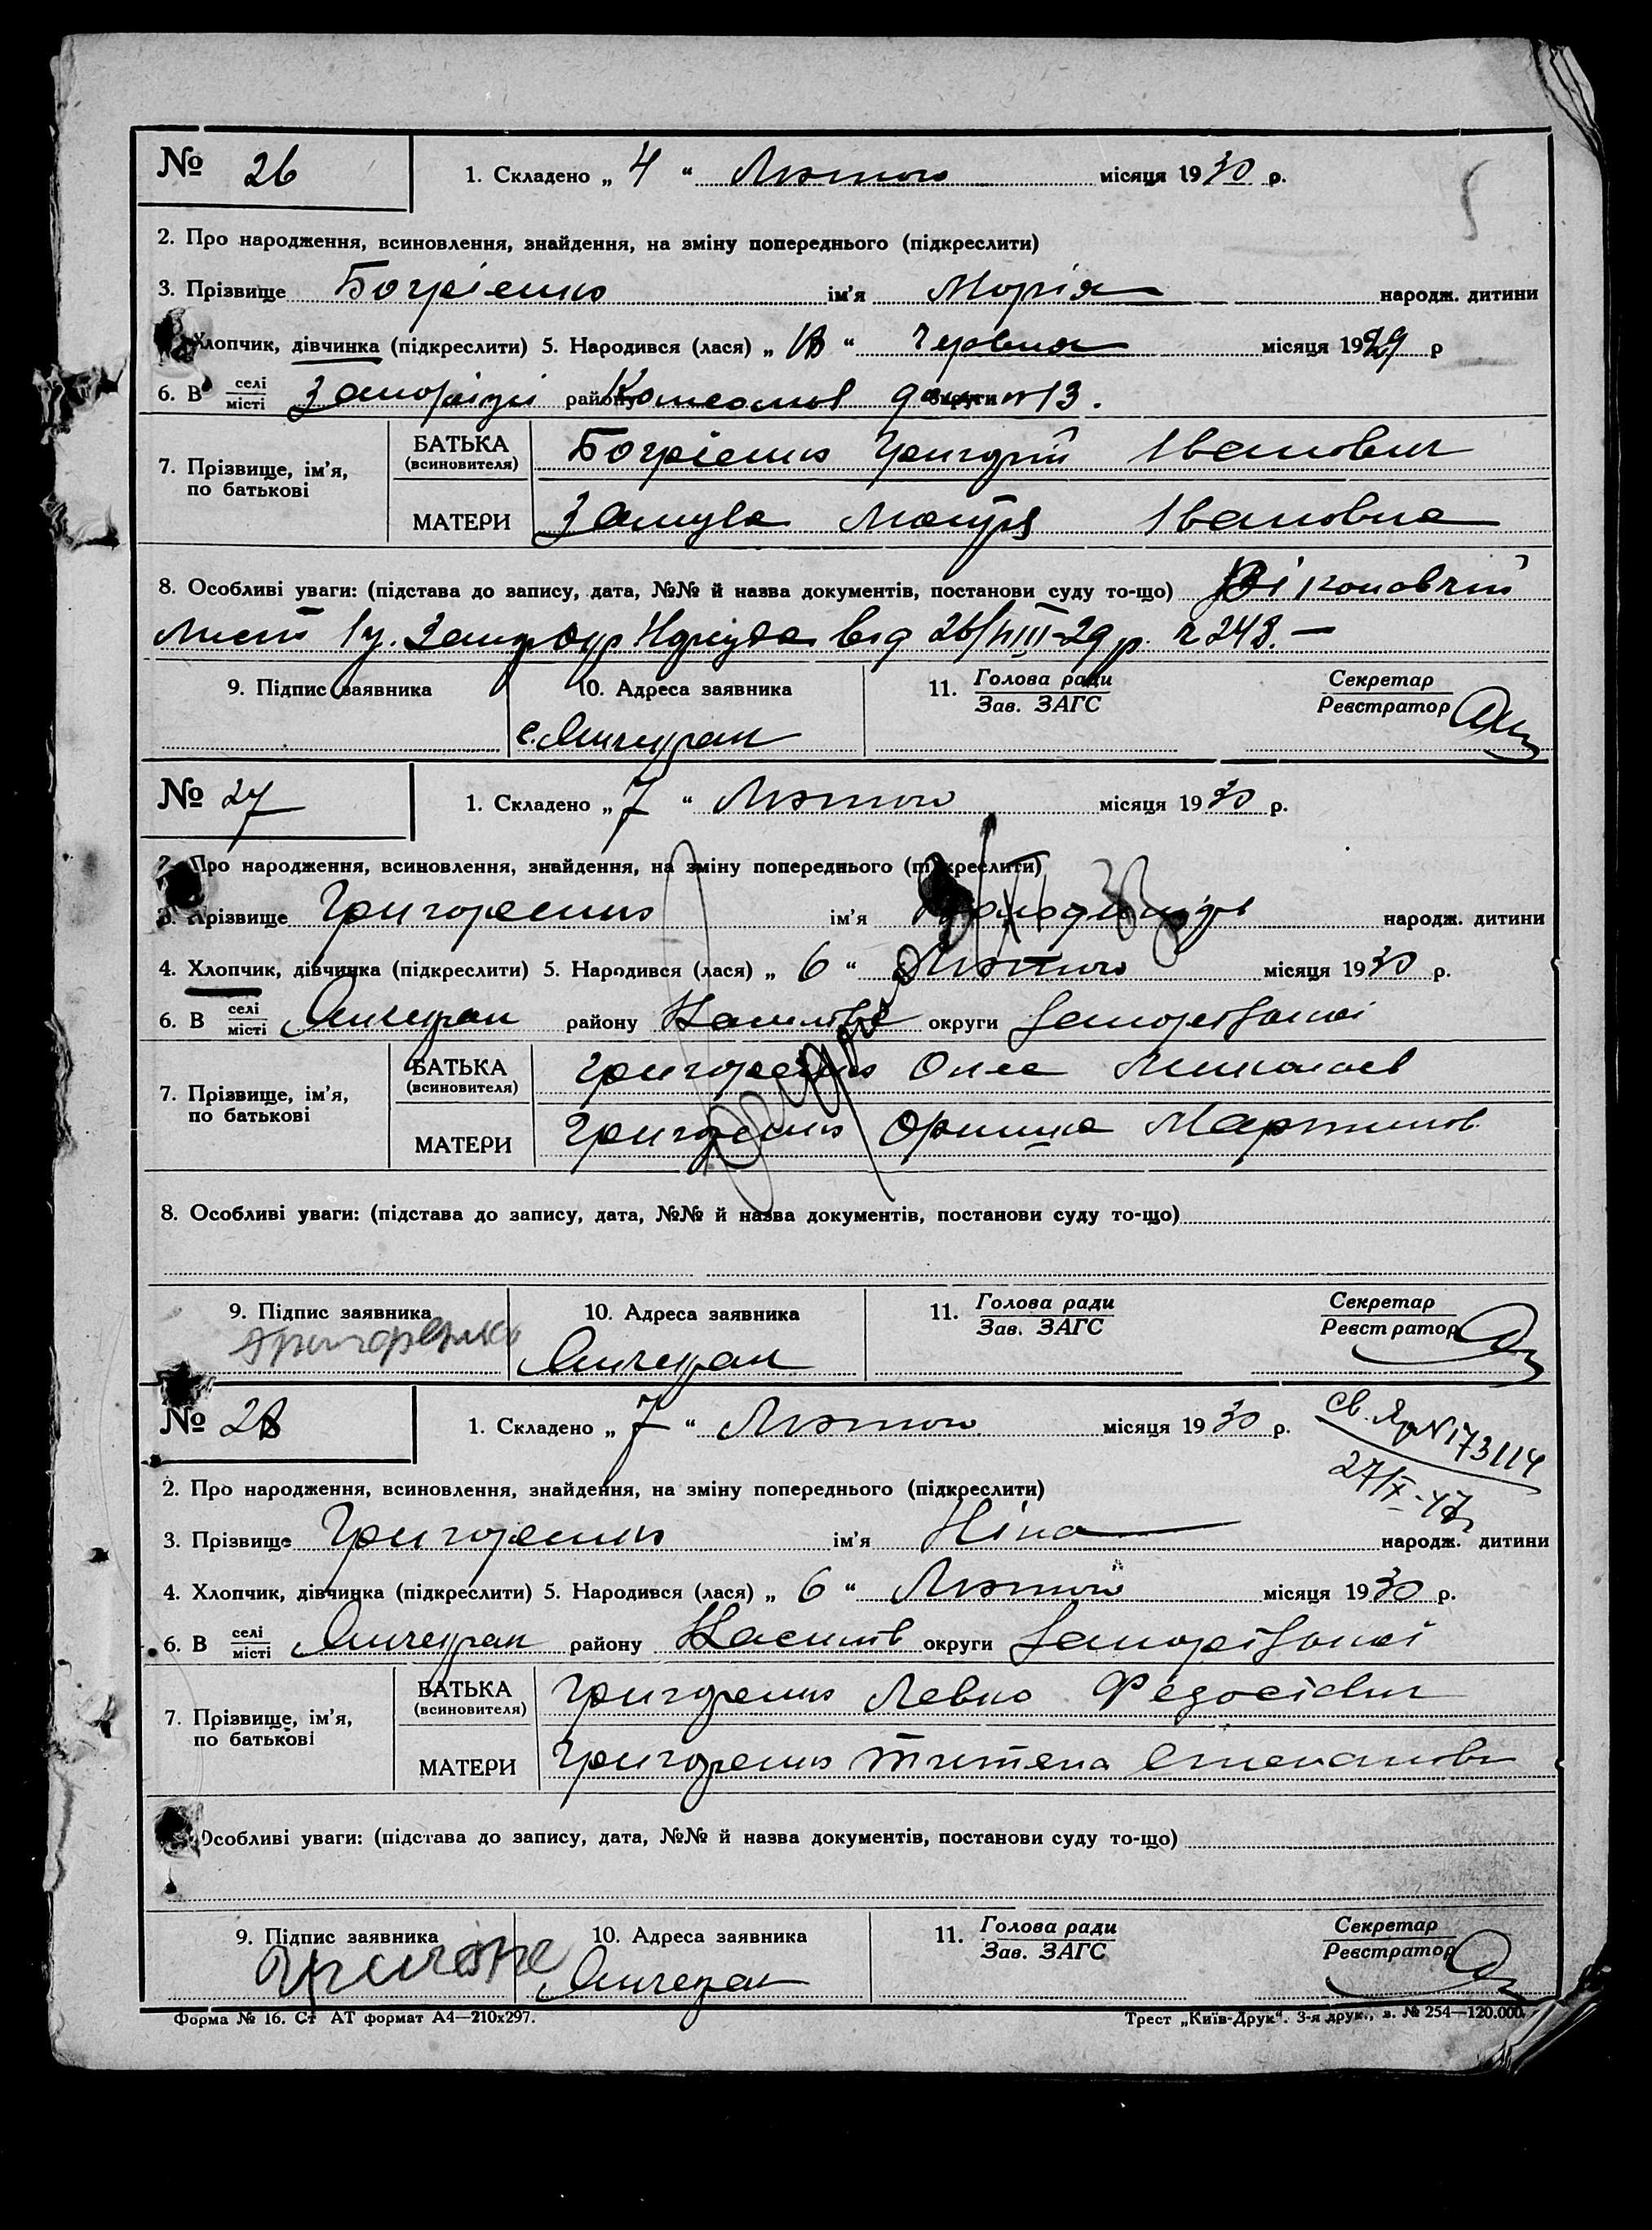 № 26 1. Складено „ 4 “ Лютого місяця 1930 р.
2. Про народження, всиновлення, знайдення, на зміну попереднього (підкреслити)
3. Прізвище ім’я Марія народж. дитини
Хлопчик, дівчинка (підкреслити) 5. Народився (лася) „ “ Червня місяця 1929 р
6. В селі/місті Запоріжжі району округи 13.
7. Прізвище, ім’я, по батькові БАТЬКА (всиновителя) Григорій Іванович
МАТЕРИ Івановна
8. Особливі уваги: (підстава до запису, дата, №№ й назва документів, постанови суду то-що)
Лист від 26/VIII-29 р. 248.—
9. Підпис заявника 10. Адреса заявника 11. Голова ради/Зав. ЗАГС Секретар/Реєстратор
с. Янчекрак
№ 27 1. Складено „ 7 “ Лютого місяця 1930 р.
Про народження, всиновлення, знайдення, на зміну попереднього (підкреслити)
3. Прізвище Григоренко ім’я народж. дитини
4. Хлопчик, дівчинка (підкреслити) 5. Народився (лася) „ 6 “ Лютого місяця 1930 р.
6. В селі/місті Янчекрак району округи Запоріжської
7. Прізвище, ім’я, по батькові БАТЬКА (всиновителя) Григоренко
МАТЕРИ Григоренко Оришка Мартинов.
8. Особливі уваги: (підстава до запису, дата, №№ й назва документів, постанови суду то-що)
9. Підпис заявника 10. Адреса заявника 11. Голова ради/Зав. ЗАГС Секретар/Реєстратор
Григоренко Янчекрак
№ 28 1. Складено „ 7 “ Лютого місяця 1930 р.
св. N 173114
27/IX-47
2. Про народження, всиновлення, знайдення, на зміну попереднього (підкреслити)
3. Прізвище Григоренко ім’я Ніна народж. дитини
4. Хлопчик, дівчинка (підкреслити) 5. Народився (лася) „ 6 “ Лютого місяця 1930 р.
6. В селі/місті Янчекрак району Василів округи Запоріжської
7. Прізвище, ім’я, по батькові БАТЬКА (всиновителя) Григоренко Левко Федосієвич
МАТЕРИ Григоренко Титяна Степанов
Особливі уваги: (підстава до запису, дата, №№ й назва документів, постанови суду то-що)
9. Підпис заявника 10. Адреса заявника 11. Голова ради/Зав. ЗАГС Секретар/Реєстратор
Янчекрак
Форма № 16. Ст АТ формат А4—210х297. Трест „Київ-Друк“. 3-я друк., з. № 254—120.000.